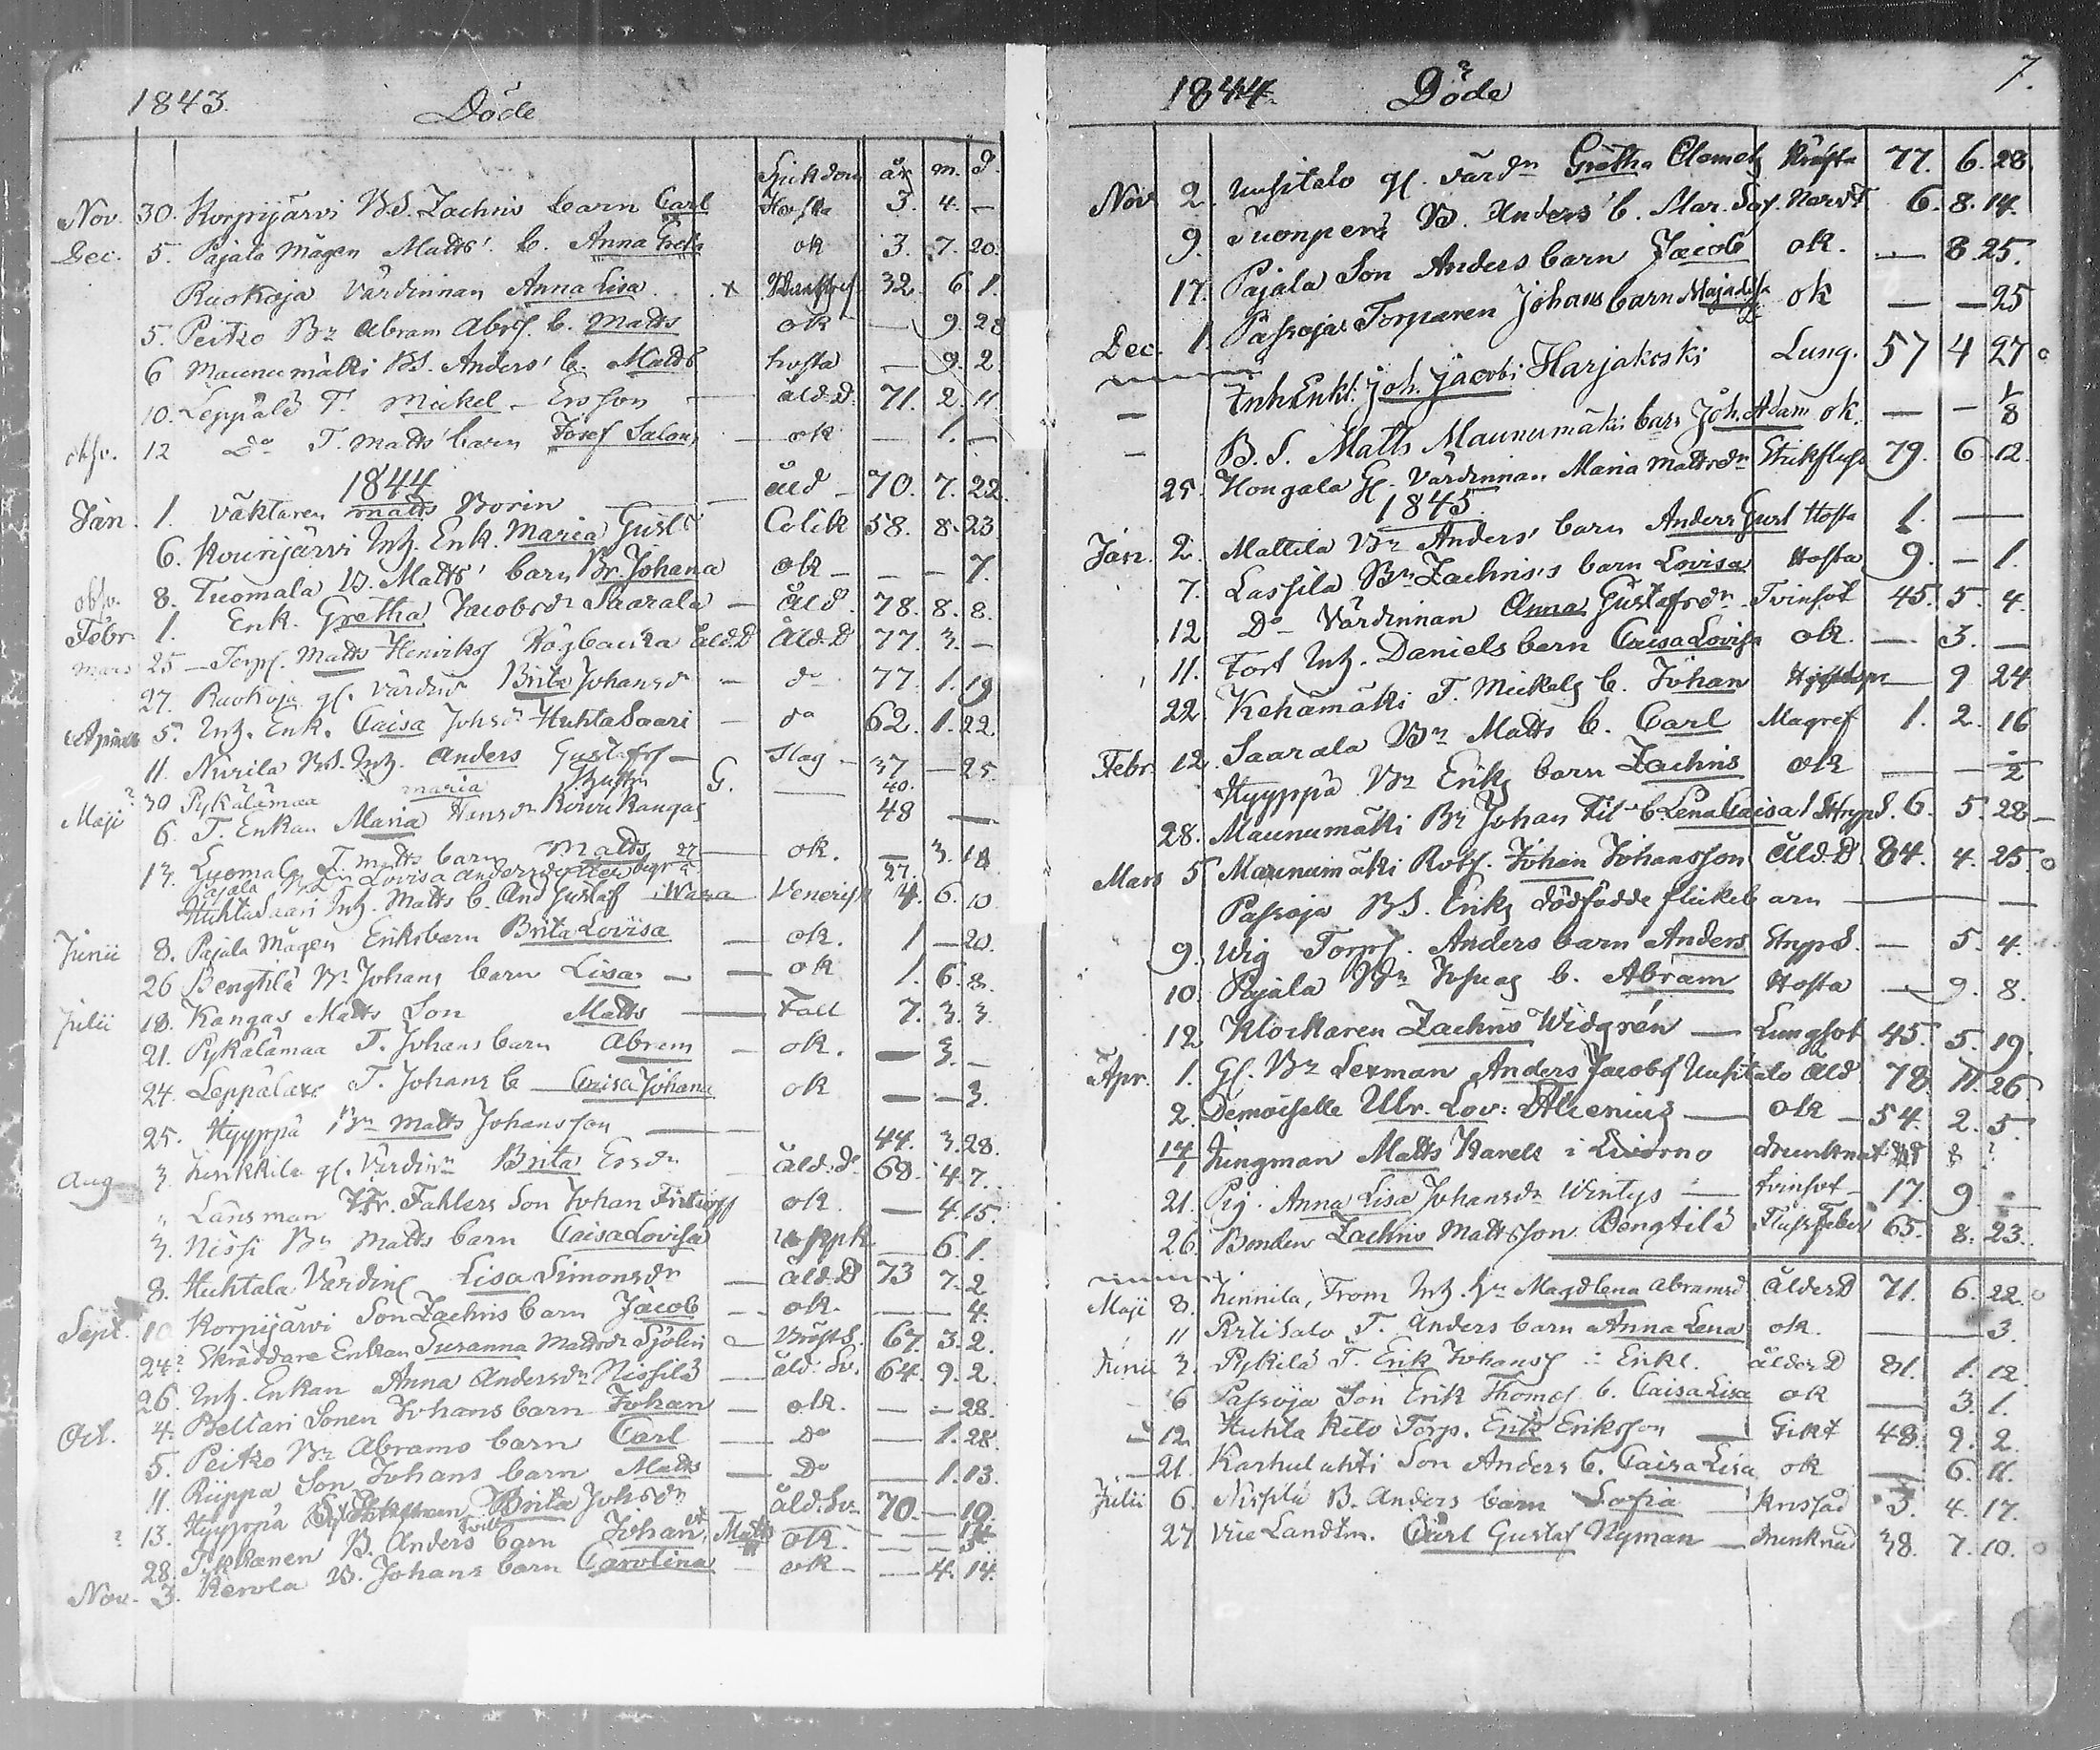 1843. Döde
Sjukdom år m. d.
Nov. 30. Korpijärvi B.S. Zachris barn Carl Hosta 3. 4. —
Dec. 5. Pajala Mågen Matts' b. Anna Greta ok 3. 7. 20.
Ruokoja Värdinnan Anna Lisa x 32. 6 1.
5. Peitzo Bn Abram Abrs. b. Matts ok — 9. 28
6 Maunumäki BS. Anders' b. Matts hosta — 9. 2.
10. Leppälä T. Mickel Ersson — åld.D. 71. 2. 11.
obs. 12 Do T. Matts' barn Josef Salom — ok — 1. —
1844
Jan. 1. Väktaren Matts Borin — åld — 70. 7. 22.
6. Kourijärvi Inh. Enk. Maria Gust. Colik 58. 8. 23
obs. 8. Tuomala B. Matts' barn Br. Johana ok — — — 7.
Febr. 1. Enk. Gretha Jacobsdr Saarala — Åld. 78. 8. 8.
Mars 25 — Torp. Matts Henriks Högbacka åld.D Åld.D 77. 3. —
27. Ruokoja gl. värdin Brita Johansd — do 77. 1. 19
Aprill 5. Inh. Enk. Caisa Johsdr Huhtasaari — do 62. 1. 22.
11. Nurila BS. Inh. Anders Gustafss — Slag — 37 — 25.
? 30 Pykälämaa Maria G. — 40.
Maji 6. T. Enkan Maria Hansdr Koivukangas 48 —
13. Luomala T. Matts barn Matts — ok. — 3. 18
Pajala Lovisa Andersdotter 27.
Huhtasaari Inh. Matts b. And Gustaf i Wasa Venerisk 4. 6. 10
Junii 8. Pajala Mågen Eriks barn Brita Lovisa — ok. 1 — 20.
26 Bengtilä Bn Johans barn Lisa — — ok 1. 6. 8.
Julii 18. Kangas Matts Son Matts — Fall 7. 3. 3.
21. Pykälämaa T. Johans barn Abram — ok. — 3. —
24. Leppälax T. Johans b — Caisa Johana ok — — 3.
25. Hyyppä Bn Matts Johansson — 44. 3. 28.
Aug 3. gl. Värdinn Brita Ersdr — åld.d. 68. 4 7.
" Länsman Fr. Fahlers Son Johan Fritioff ok. — 4. 15.
3. Nissi Bn Matts barn Caisa Lovisa — 6. 1.
8. Huhtala Värdin Lisa Simonsdr — åld.D 73 7. 2
Sept. 10 Korpijärvi Son Zachris barn Jacob — ok. — — 4.
24? Skräddare Enkan Susanna Mattsdr Sjölin Bröst S. 67. 3. 2.
26. Inh. Enkan Anna Andersdr Nissilä — åld. Sv. 64. 9. 2.
Oct. 4. Beltari Sonen Johans barn Johan — ok. — — 28.
5. Peitzo Bn Abrams barn Carl — Do — 1. 28.
11. Riippa Son Johans barn Matts — Do — 1. 13.
? 13. Hyyppä Brita Johsdr — åld.Sv. 70. — 10.
28. B. Anders barn Johan, Matts ok. — —
Nov. 3. Kerola B. Johans barn Carolina — ok — — 4. 14.
1844. Döde 7.
Nov 2. Uusitalo gl. värdn Gretha Clemets Kräfta 77. 6. 28.
9. Tuonperä B. Anders' b. Mar. Sof. 6. 8. 14.
17. Pajala Son Anders barn Jacob ok. — 8. 25.
Dec. 1. Passoja Torparen Johans barn Maja Lisa ok — — 25
— Inh Enkl. Joh. Jacobi Harjakoski Lung. 57 4 27 o
— B. S. Matts Maunumäki barn Joh. Adam ok. — — 1/8
25. Hongala Gl. Värdinnan Maria Mattsdr Stickfluss 79. 6 12.
1845
Jan. 2. Mattila Bn Anders' barn Anders Gust Hosta 1. —
7. Lassila Bn Zachris's barn Lovisa Hosta 9. — 1.
12 Do Värdinnan Anna Gustafsdr Tvinsot 45. 5. 4.
11. Fors Inh. Daniels barn Caisa Lovisa ok. — 3. —
22. Kehämäki T. Mickels b. Johan — 9 24
Febr. 12. Saarala Bn Matts b. Carl Magref 1. 2. 16
Hyyppä Bn Eriks barn Zachris ok — — 1/2
28. Maunumäki Bn Johan b. Lena Caisa Stryps. 6. 5. 28 —
Mars 5 Maunumäki Rots. Johan Johansson Åld.D 84. 4. 25. o
Passoja B.S. Eriks dödfödde flickebarn — —
9. Wig Torp. Anders barn Anders Stryps. — 5. 4.
10. Pajala Bn b. Abram Hosta — 9. 8.
12 Klockaren Zachris Widgrén — Lungsot 45. 5. 19.
Apr. 1. Gl. Bn Lexman Anders Jacobs Uusitalo Åld 78. 11. 26
2. Demoiselle Ulr. Lov: Alcenius — ok — 54. 2. 5.
17/1 Jungman Matts Karels i Livorno drunknat ?
21. Pig. Anna Lisa Johansdr Wintys — tvinsot — 17. 9 —
26. Bonden Zachris Mattsson Bengtilä Flussfeber 65. 8. 23.
Maji 8. Kinnila, From Inh. Magdlena Abramsd ÅlderD 71. 6. 22. o
11 Pirtisalo T. Anders barn Anna Lena ok. — — 3.
Junii 3. Pykilä T. Erik Johanss — Enkl. ålder D 81. 1. 12.
6 Passoja Son Erik Thomas b. Caisa Lisa ok — 3. 1.
12 Huhta Keto Torp. Erik Eriksson — Gikt 48. 9. 2.
21. Karhulahti Son Anders b. Caisa Lisa ok — 6. 11.
Julii 6. Nissilä B. Anders barn Sofia — 3. 4. 17.
27 Vice Landtm. Carl Gustaf Nyman — drunknad 38. 7. 10. o